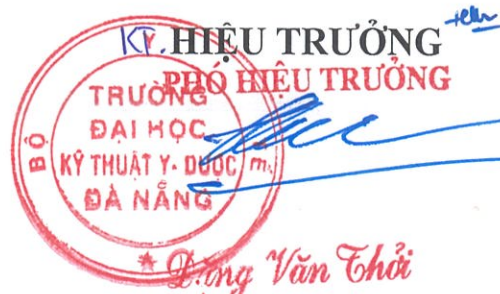 KT. HIỆU TRƯỞNG
PHÓ HIỆU TRƯỞNG
BỘ
TRƯỜNG
ĐẠI HỌC
KỸ THUẬT Y- DƯỢC
ĐÀ NẴNG
Văn Thởi